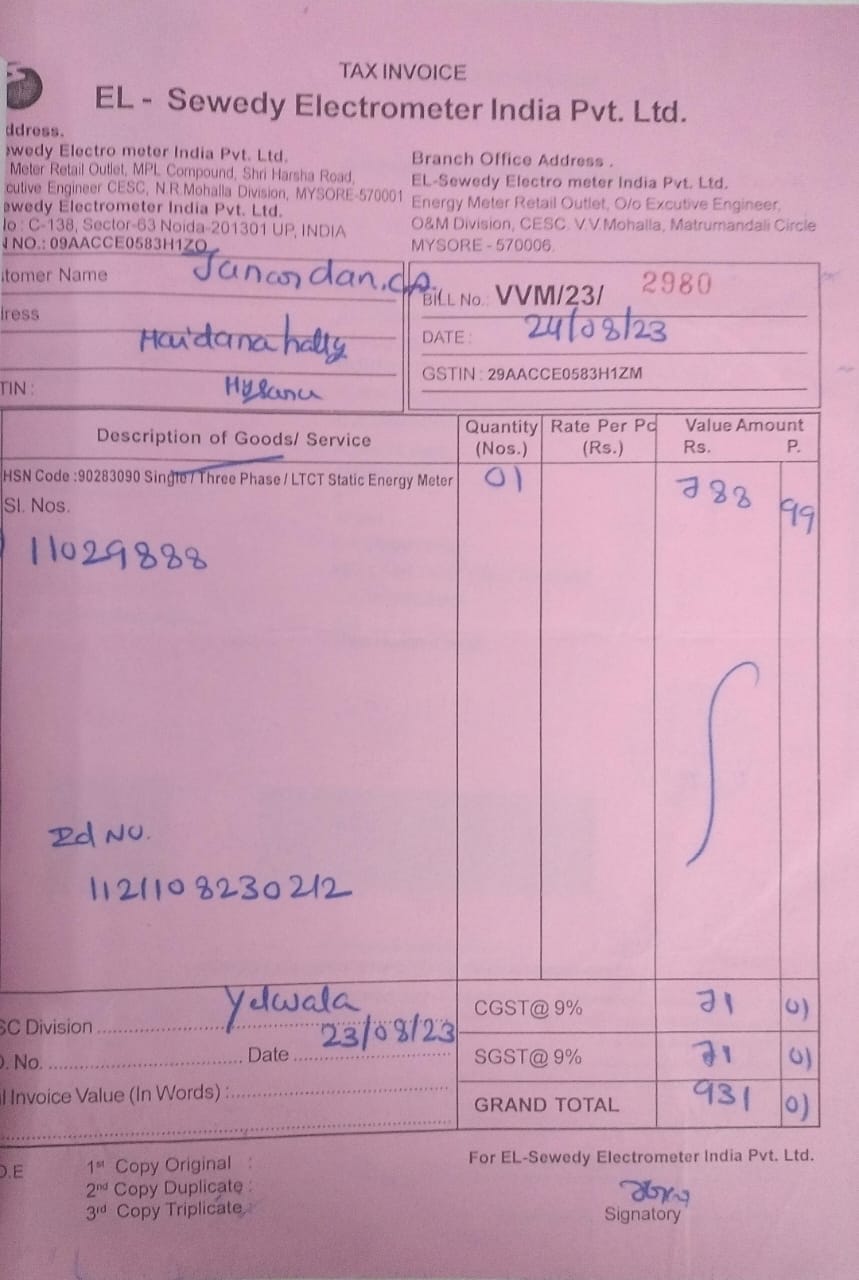 TAX INVOICE
EL - Sewedy Electrometer India Pvt. Ltd.
ddress.
ewedy Electro meter India Pvt. Ltd.
Meter Retail Outlet, MPL Compound, Shri Harsha Road,
cutive Engineer CESC, N.R.Mohalla Division, MYSORE-570001
ewedy Electrometer India Pvt. Ltd.
lo : C-138, Sector-63 Noida-201301 UP, INDIA
N NO.: 09AACCE0583H1ZO
Branch Office Address .
EL-Sewedy Electro meter India Pvt. Ltd.
Energy Meter Retail Outlet, O/o Excutive Engineer,
O&M Division, CESC. V.V.Mohalla, Matrumandali Circle
MYSORE - 570006.
tomer Name
dress
TIN :
BILL No.: VVM/23/ 2980
DATE : 24/08/23
GSTIN : 29AACCE0583H1ZM
Description of Goods/ Service
Quantity (Nos.)
Rate Per Pc (Rs.)
Value Amount
Rs. P.
HSN Code :90283090 Single / Three Phase / LTCT Static Energy Meter
01
788 99
Sl. Nos.
11029888
Id No.
1121108230212
SC Division Yelwala
O. No. Date 23/08/23
l Invoice Value (In Words) :
CGST@ 9% 71 01
SGST@ 9% 71 01
GRAND TOTAL 931 01
O.E
1st Copy Original :
2nd Copy Duplicate :
3rd Copy Triplicate
For EL-Sewedy Electrometer India Pvt. Ltd.
Signatory